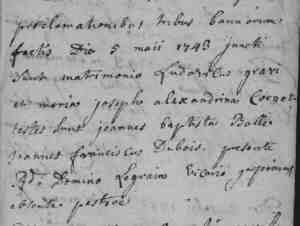 proclamationibus tribus bannorum
factis Die 5 maii 1743 juncti
sunt matrimonio Ludovicus gravi
et maria joseph alexandrina
testes sunt joannes baptista
joannes franciscus Dubois. presente
Domino Legrain Vicario
absente pastore